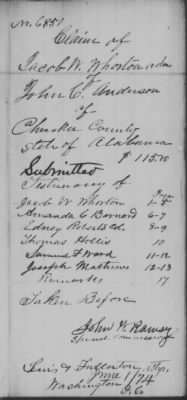 No. 6851
Claim of
Jacob W. Whorton adm
of
John C. Anderson
of
Cherokee County
State of Alabama
$ 115.00
Submitted
Testimony of
Page
Jacob W Whorton 1-5
Amanda C Barnard 6-7
Edney Roberts Col. 8-9
Thomas Hollis 10
Samuel F Ward 11-12
Joseph Mathews 12-13
Remarks 17
Taken Before
John W. Ramsey
Special Commissioner
Fullerton, Attys.
Washington
D.C.
June 1/74